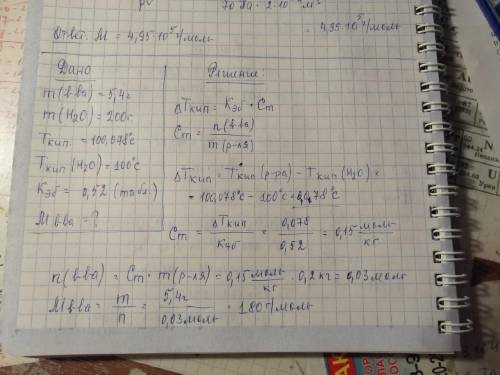 pV
Ответ. M = 4,95·10⁵ г/моль
= 4,95·10⁵ г/моль
Дано
m(в-ва) = 5,4г
m(H₂O) = 200г
Tкип. = 100,078°C
Tкип (H₂O) = 100°C
Kэб = 0,52 (табл.)
M в-ва = ?
Решение:
ΔTкип = Kэб · Cm
Cm = n(в-ва) / m(р-ля)
ΔTкип = Tкип (р-ра) − Tкип (H₂O) =
= 100,078°C − 100°C = 0,078°C
Cm = ΔTкип / Kэб = 0,078 / 0,52 = 0,15 моль/кг
n(в-ва) = Cm · m(р-ля) = 0,15 моль/кг · 0,2 кг = 0,03 моль
M в-ва = m / n = 5,4г / 0,03 моль = 180 г/моль